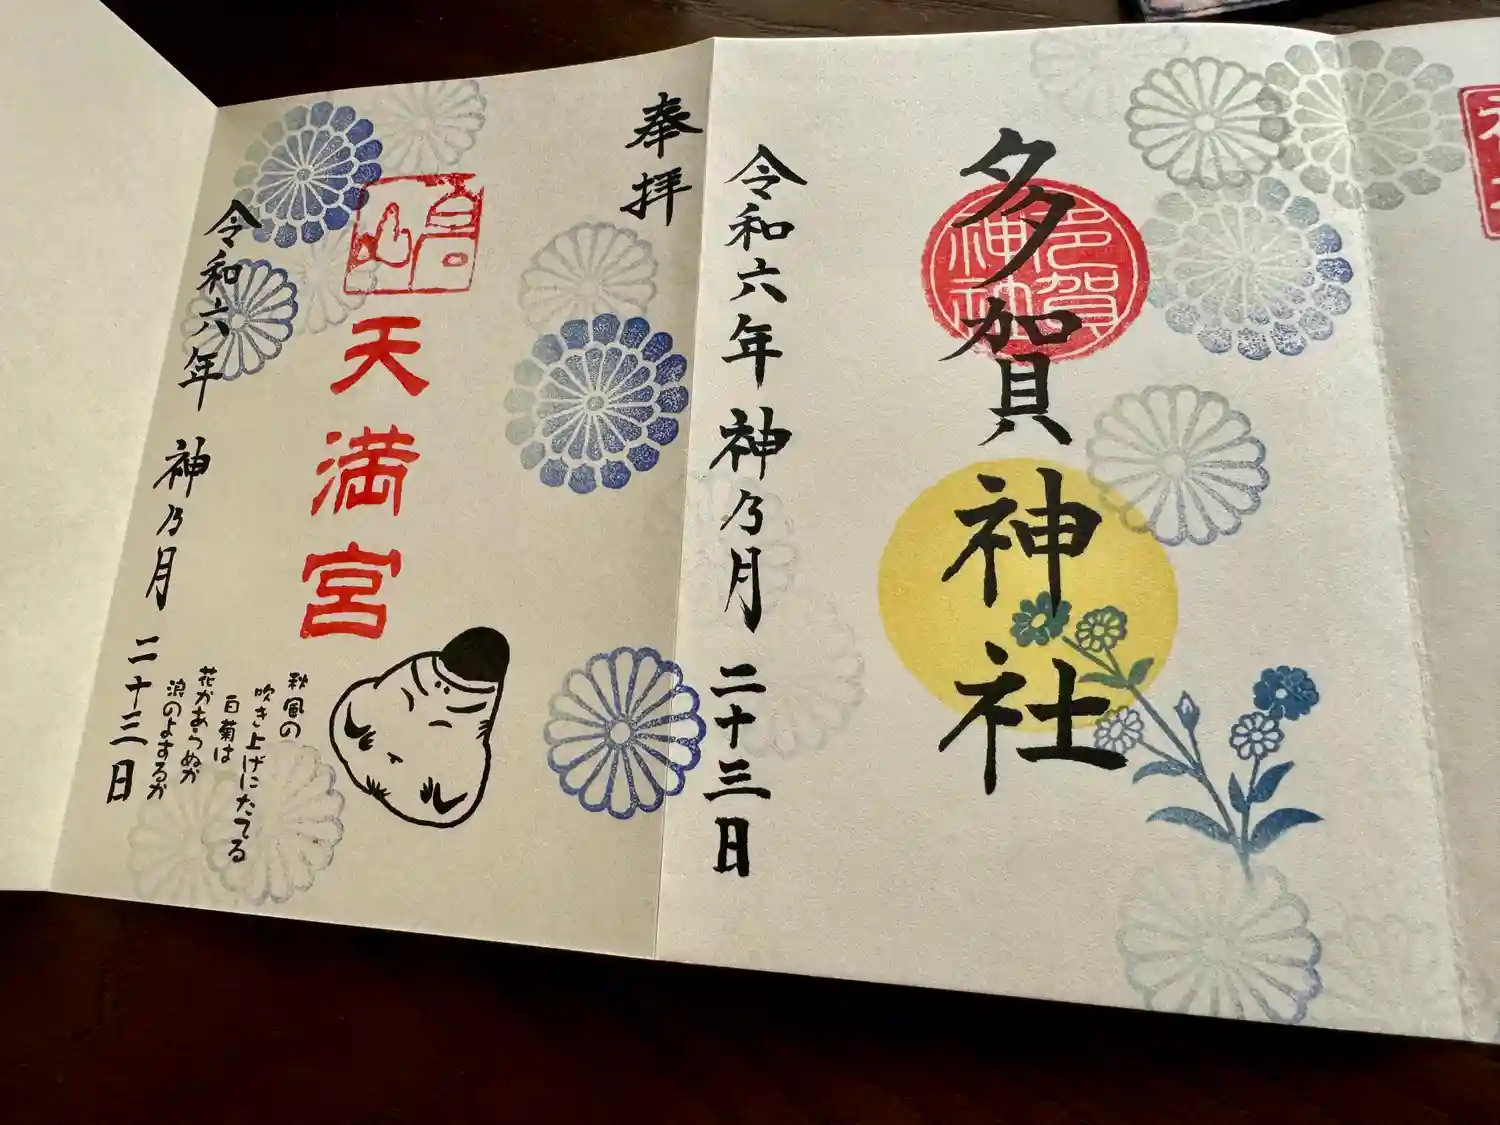 多賀神社
多賀神社
令和六年 神乃月 二十三日
奉拝
天満宮
秋風の
吹き上げにたてる
白菊は
花かあらぬか
浪のよするか
令和六年 神乃月 二十三日